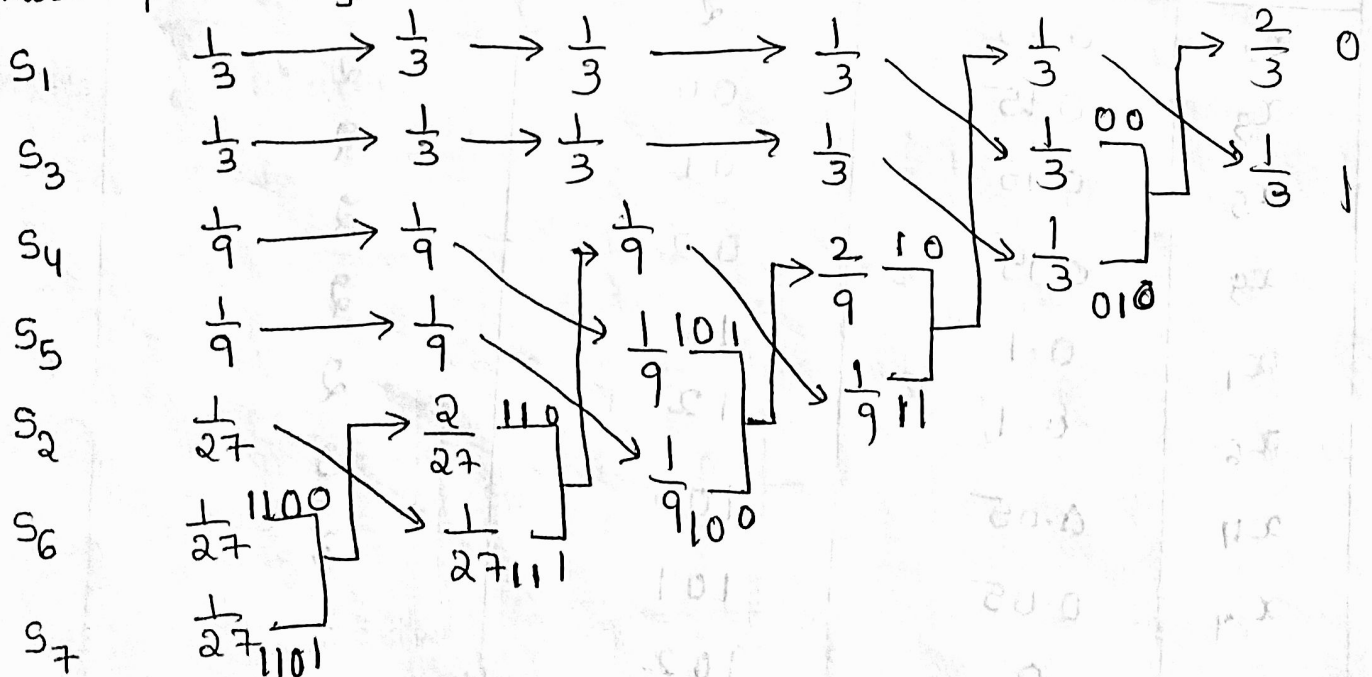 S1 1/3 → 1/3 → 1/3 → 1/3 1/3 2/3 0
S3 1/3 → 1/3 → 1/3 → 1/3 1/3 00 1/3 1
S4 1/9 → 1/9 1/9 2/9 10 1/3 010
S5 1/9 → 1/9 1/9 101 1/9 11
S2 1/27 2/27 110 1/9 100
S6 1/27 1100 1/27 111
S7 1/27 1101